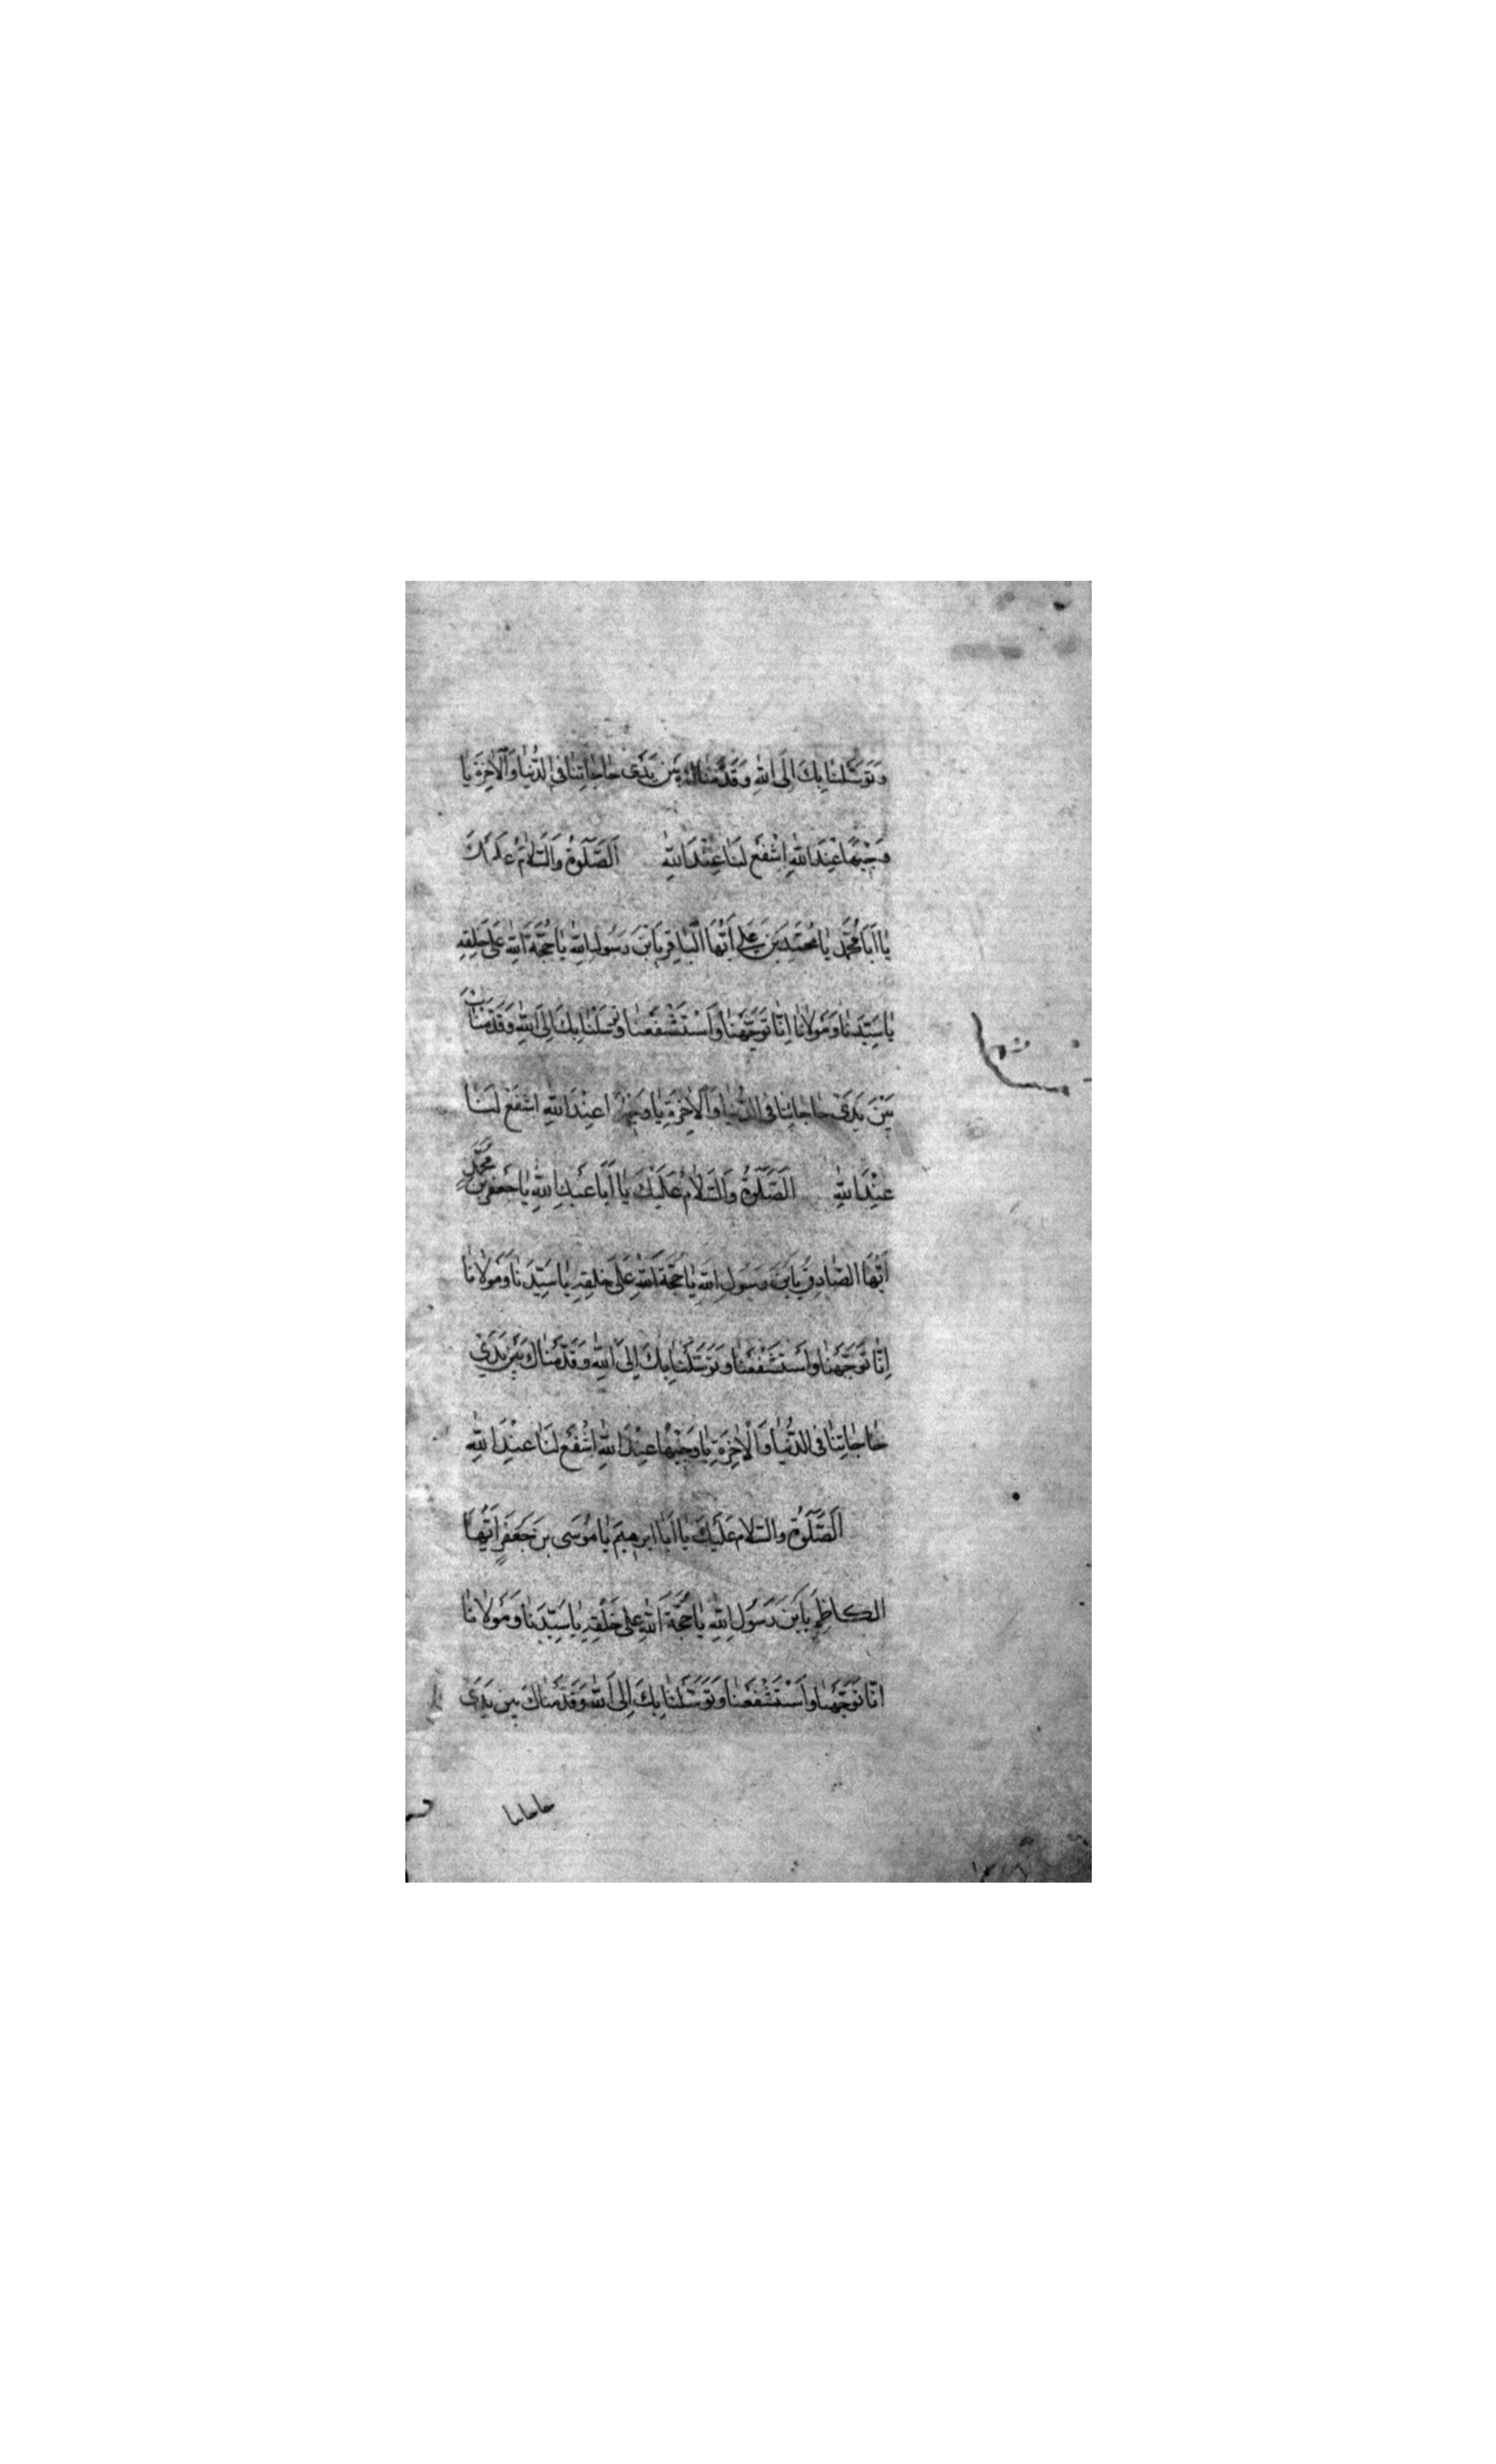 وَتَوَسَّلْنٰا بِكَ اِلَى اللّٰهِ وَقَدَّمْنٰاكَ بَيْنَ يَدَىْ حٰاجٰاتِنٰا فِى الدُّنْيٰا وَالْاٰخِرَةِ يٰا
وَجِيْهًا عِنْدَ اللّٰهِ اِشْفَعْ لَنٰا عِنْدَ اللّٰهِ اَلصَّلٰوةُ وَالسَّلٰامُ عَلَيْكَ
يٰا اَبٰا مُحَمَّدٍ يٰا مُحَمَّدَ بْنَ عَلِىٍّ اَيُّهَا الْبٰاقِرُ يَابْنَ رَسُولِ اللّٰهِ يٰا حُجَّةَ اللّٰهِ عَلٰى خَلْقِهِ
يٰا سَيِّدَنٰا وَمَوْلٰانٰا اِنّٰا تَوَجَّهْنٰا وَاسْتَشْفَعْنٰا وَتَوَسَّلْنٰا بِكَ اِلَى اللّٰهِ وَقَدَّمْنٰاكَ
بَيْنَ يَدَىْ حٰاجٰاتِنٰا فِى الدُّنْيٰا وَالْاٰخِرَةِ يٰا وَجِيْهًا عِنْدَ اللّٰهِ اشْفَعْ لَنٰا
عِنْدَ اللّٰهِ اَلصَّلٰوةُ وَالسَّلٰامُ عَلَيْكَ يٰا اَبٰا عَبْدِ اللّٰهِ يٰا جَعْفَرَ بْنَ مُحَمَّدٍ
اَيُّهَا الصّٰادِقُ يَابْنَ رَسُولِ اللّٰهِ يٰا حُجَّةَ اللّٰهِ عَلٰى خَلْقِهِ يٰا سَيِّدَنٰا وَمَوْلٰانٰا
اِنّٰا تَوَجَّهْنٰا وَاسْتَشْفَعْنٰا وَتَوَسَّلْنٰا بِكَ اِلَى اللّٰهِ وَقَدَّمْنٰاكَ بَيْنَ يَدَىْ
حٰاجٰاتِنٰا فِى الدُّنْيٰا وَالْاٰخِرَةِ يٰا وَجِيْهًا عِنْدَ اللّٰهِ اشْفَعْ لَنٰا عِنْدَ اللّٰهِ
اَلصَّلٰوةُ وَالسَّلٰامُ عَلَيْكَ يٰا اَبٰا اِبْرٰهِيمَ يٰا مُوسَى بْنَ جَعْفَرٍ اَيُّهَا
الْكٰاظِمُ يَابْنَ رَسُولِ اللّٰهِ يٰا حُجَّةَ اللّٰهِ عَلٰى خَلْقِهِ يٰا سَيِّدَنٰا وَمَوْلٰانٰا
اِنّٰا تَوَجَّهْنٰا وَاسْتَشْفَعْنٰا وَتَوَسَّلْنٰا بِكَ اِلَى اللّٰهِ وَقَدَّمْنٰاكَ بَيْنَ يَدَىْ
حاجاتنا